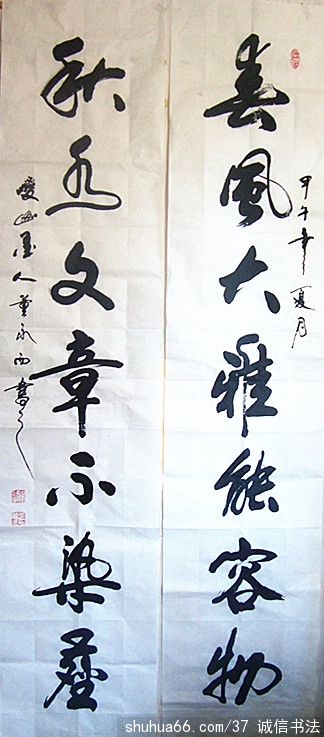 春风大雅能容物
甲午年夏月
秋水文章不染尘
双幽墨人董永西书
shuhua66.com/37 诚信书法